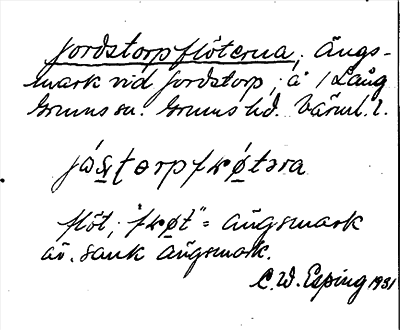 Jordstorpflöterna, ängs-
mark vid Jordstorp, å / Lång
Grums sn. Grums hd. Värml. l.
flöt, "fʀø̱t" = ängsmark
äv. sank ängsmark.
C. W. Esping 1931